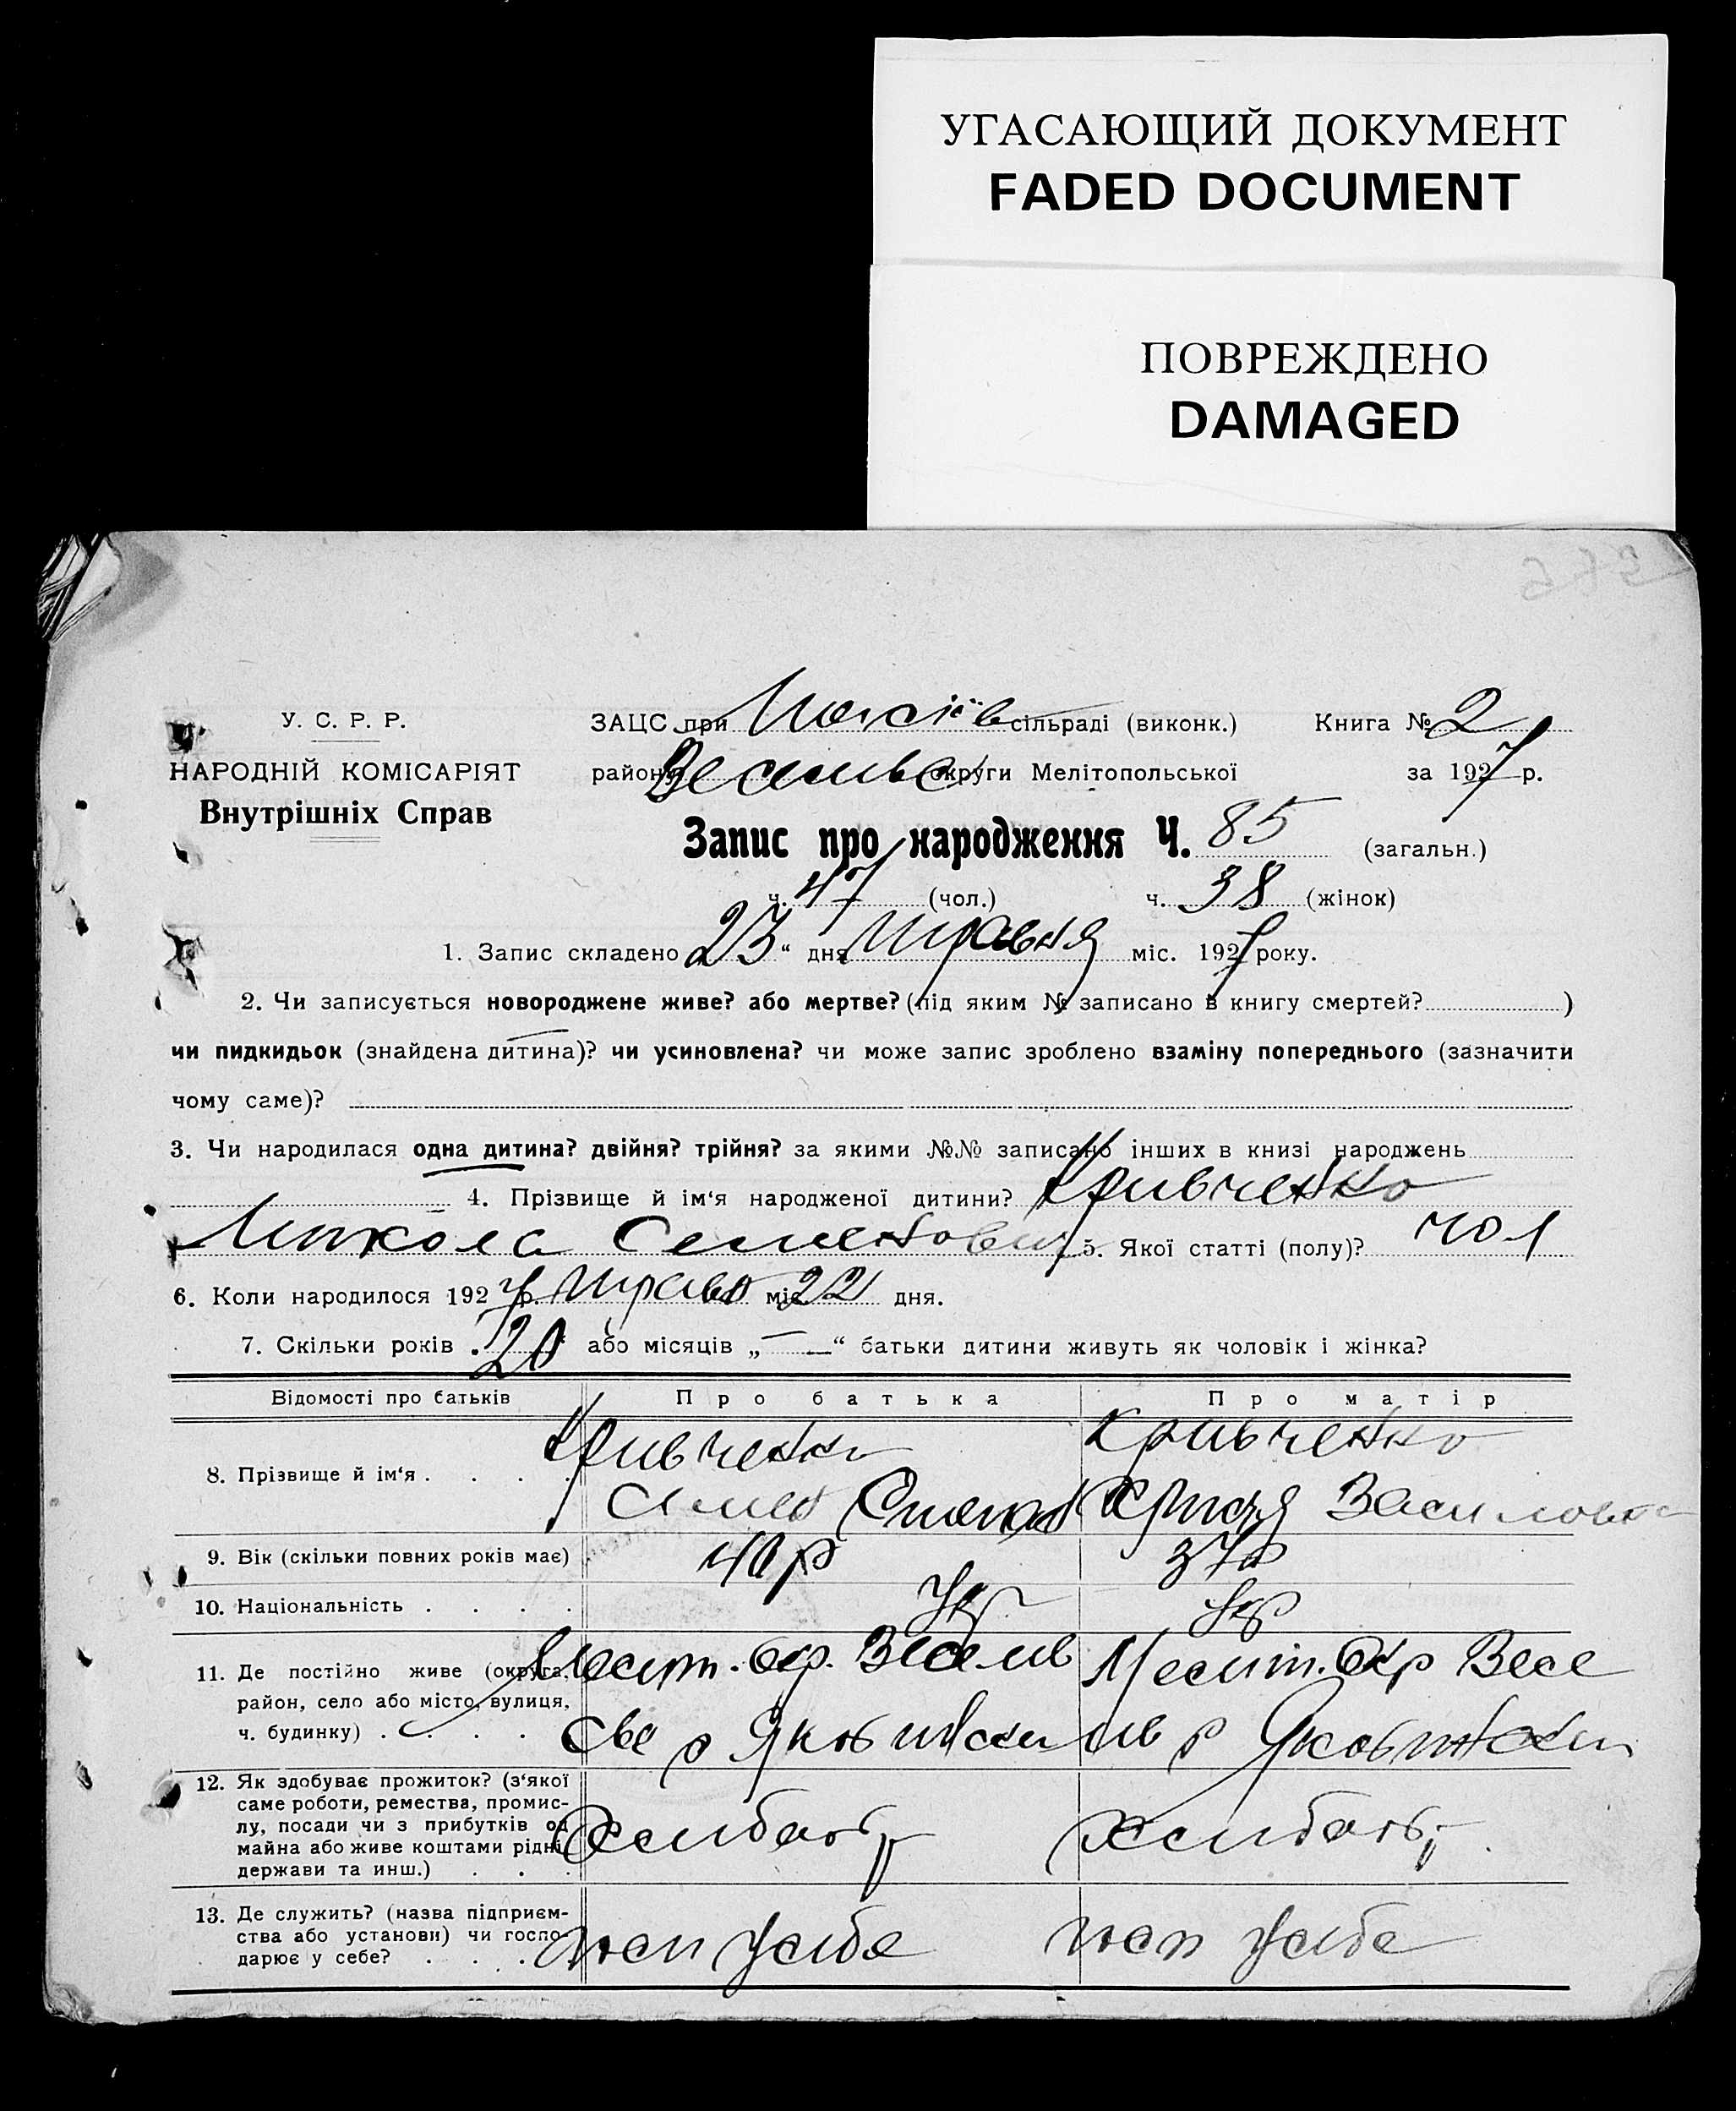 УГАСАЮЩИЙ ДОКУМЕНТ
FADED DOCUMENT
ПОВРЕЖДЕНО
DAMAGED
У. С. Р. Р.
НАРОДНІЙ КОМІСАРІЯТ
Внутрішніх Справ
ЗАЦС при сільраді (виконк.) Книга № 2
району округи Мелітопольської за 1927 р.
Запис про народження Ч. 85 (загальн.)
ч. 47 (чол.) ч. 38 (жінок)
1. Запис складено 23 “ дня травня міс. 1927 року.
2. Чи записується новороджене живе? або мертве? (під яким № записано в книгу смертей? )
чи пидкидьок (знайдена дитина)? чи усиновлена? чи може запис зроблено взаміну попереднього (зазначити
чому саме)?
3. Чи народилася одна дитина? двійня? трійня? за якими №№ записано інших в книзі народжень
4. Прізвище й ім‘я народженої дитини? Кривченко
Микола Семенович 5. Якої статті (полу)? чол
6. Коли народилося 1927 р. травня міс 22 дня.
7. Скільки років „20“ або місяців „—“ батьки дитини живуть як чоловік і жінка?
Відомості про батьків Про батька Про матір
8. Прізвище й ім‘я . . . . Кривченко Кривченко
Семен Степан Христя Василовна
9. Вік (скільки повних років має) 40 р 37 р
10. Національність . . . . Укр Укр
11. Де постійно живе (округа, Меліт. окр. Веселів Меліт. Окр Весе
район, село або місто, вулиця,
ч. будинку) . . . . р лів р
12. Як здобуває прожиток? (з‘якої
саме роботи, ремества, промис-
лу, посади чи з прибутків од
майна або живе коштами рідні, Хлибороб Хлибороб
держави та инш.) . . .
13. Де служить? (назва підприєм-
ства або установи) чи госпо-
дарює у себе? . . . госп у себе госп у себе